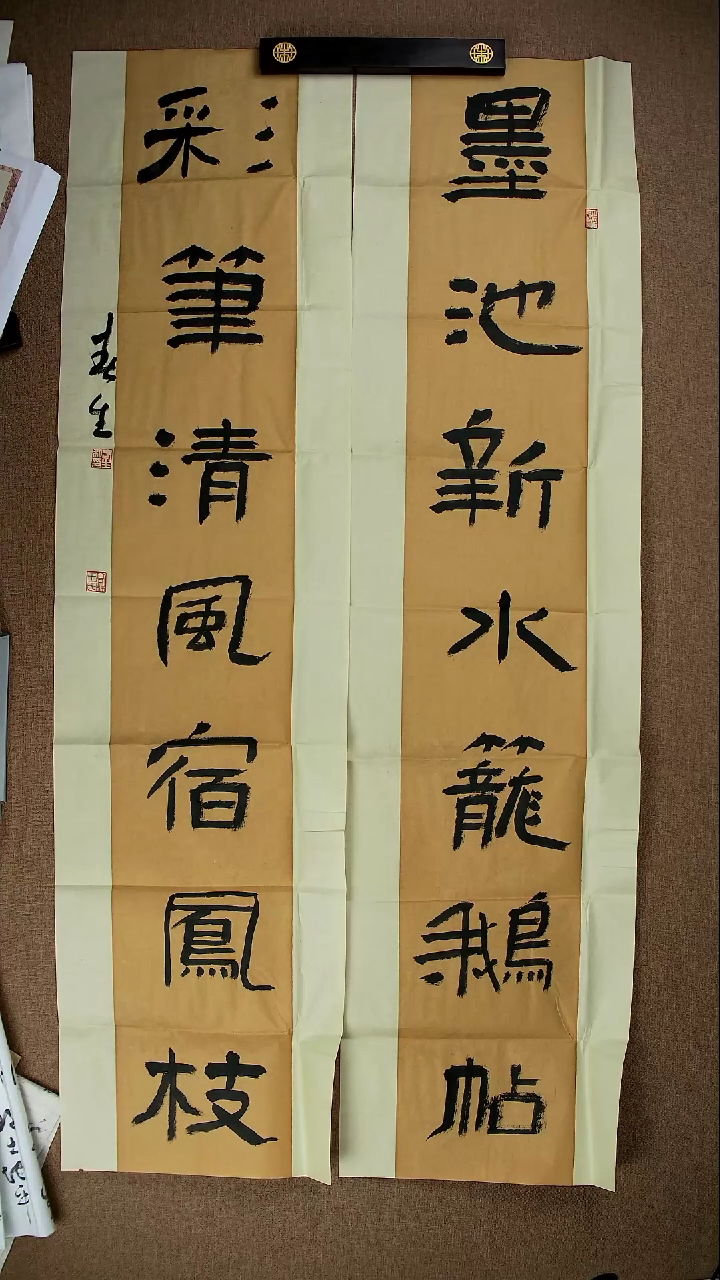 墨池新水籠鵝帖
彩筆清風宿鳳枝
春生